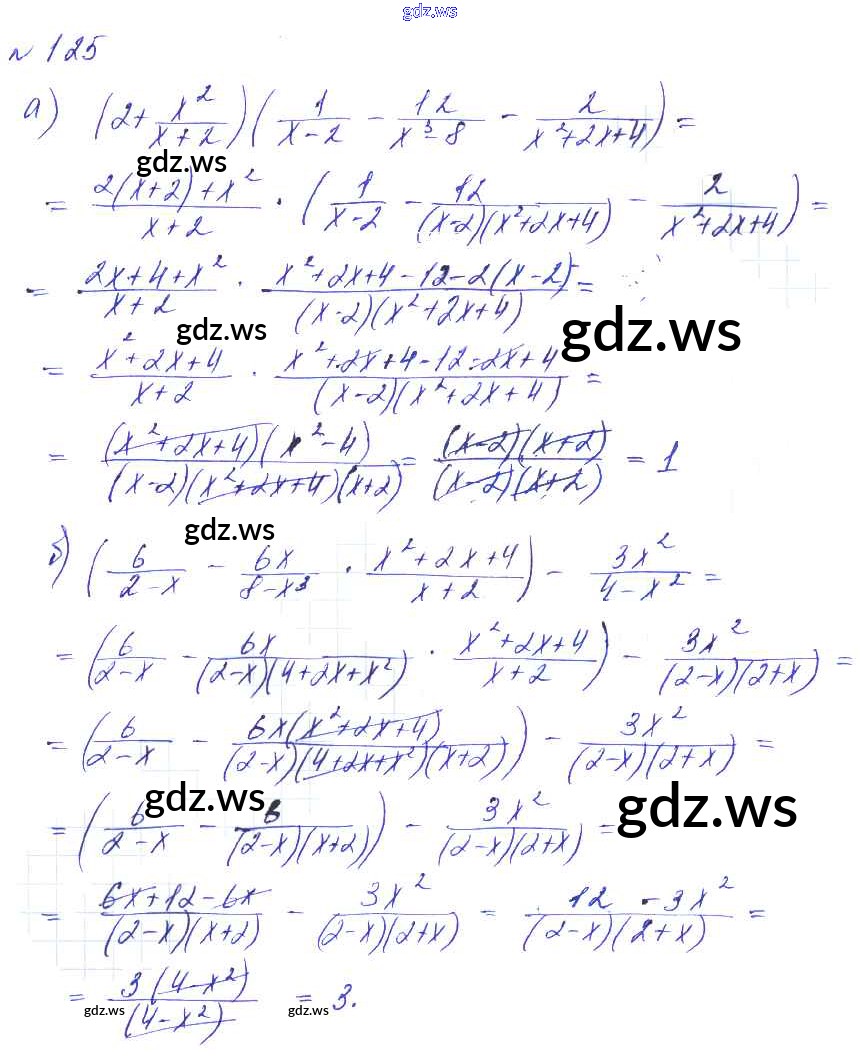 gdz.ws
№ 125
а) (2 + x²/(x+2)) (1/(x-2) - 12/(x³-8) - 2/(x²+2x+4)) =
gdz.ws
= (2(x+2)+x²)/(x+2) · (1/(x-2) - 12/((x-2)(x²+2x+4)) - 2/(x²+2x+4)) =
= (2x+4+x²)/(x+2) · (x²+2x+4-12-2(x-2))/((x-2)(x²+2x+4)) =
gdz.ws gdz.ws
= (x²+2x+4)/(x+2) · (x²+2x+4-12-2x+4)/((x-2)(x²+2x+4)) =
= ((x²+2x+4)(x²-4))/((x-2)(x²+2x+4)(x+2)) = ((x-2)(x+2))/((x-2)(x+2)) = 1
gdz.ws
б) (6/(2-x) - 6x/(8-x³) · (x²+2x+4)/(x+2)) - 3x²/(4-x²) =
= (6/(2-x) - 6x/((2-x)(4+2x+x²)) · (x²+2x+4)/(x+2)) - 3x²/((2-x)(2+x)) =
= (6/(2-x) - (6x(x²+2x+4))/((2-x)(4+2x+x²)(x+2))) - 3x²/((2-x)(2+x)) =
gdz.ws gdz.ws
= (6/(2-x) - 6/((2-x)(x+2))) - 3x²/((2-x)(2+x)) =
= (6x+12-6x)/((2-x)(x+2)) - 3x²/((2-x)(2+x)) = (12-3x²)/((2-x)(2+x)) =
= (3(4-x²))/((4-x²)) = 3.
gdz.ws gdz.ws